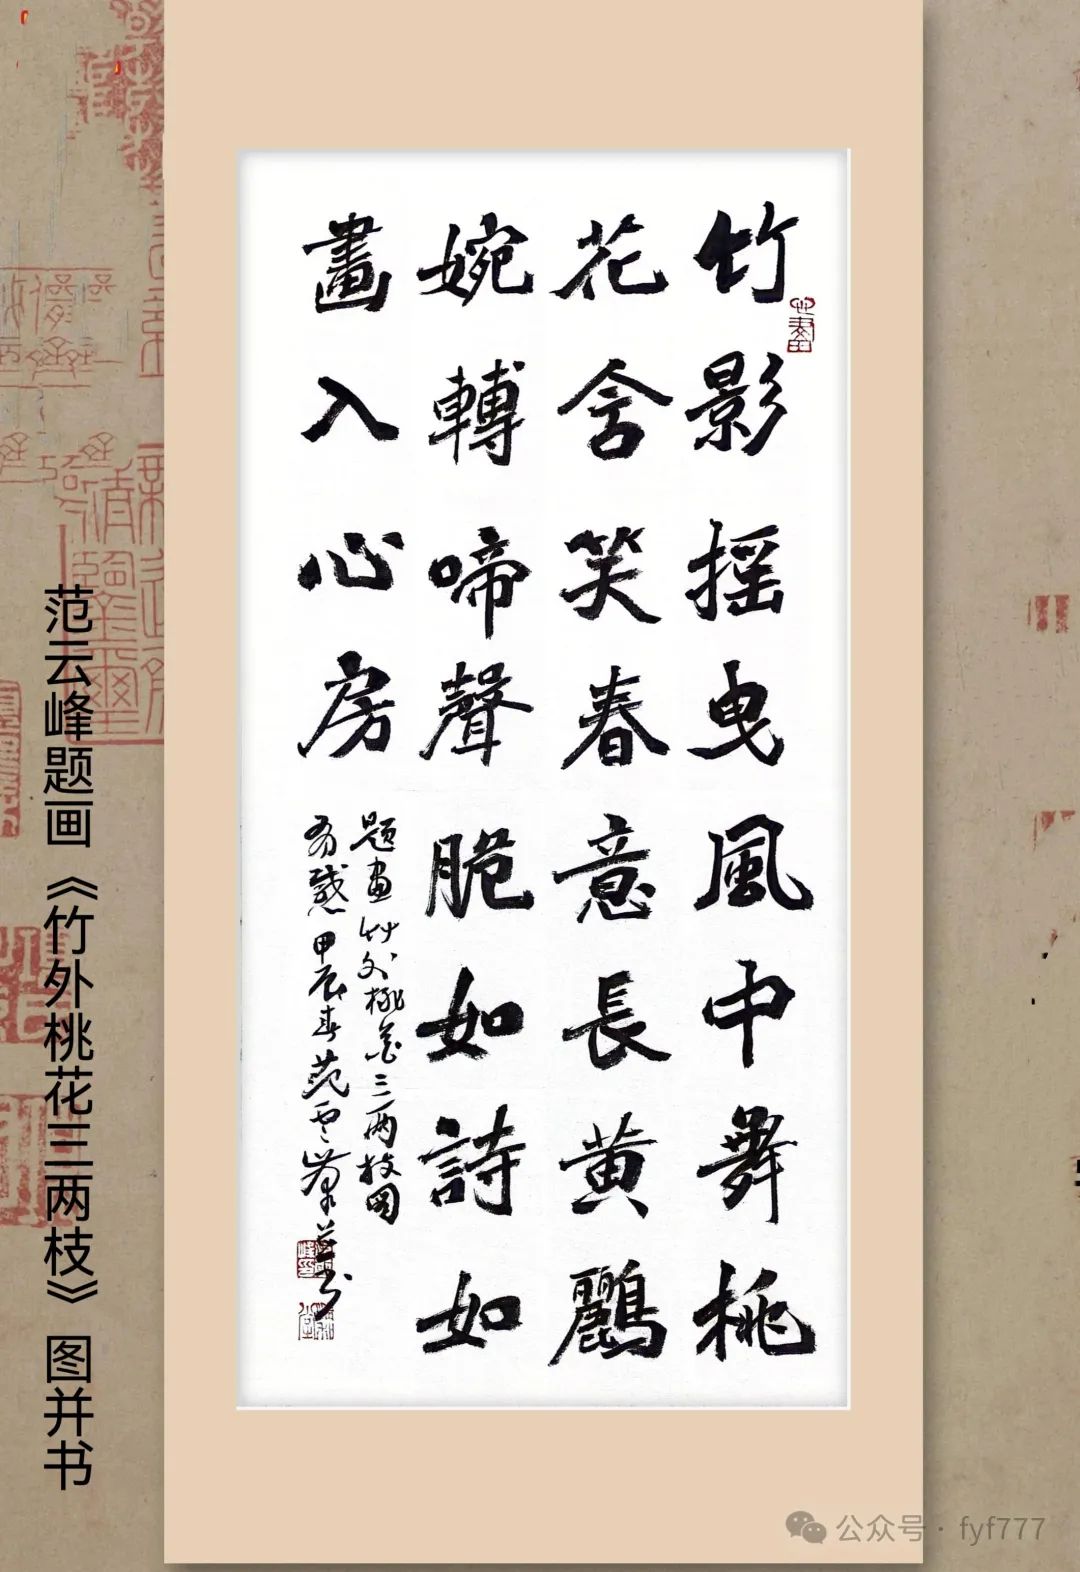 竹影摇曳風中舞桃
花含笑春意長黄鸝
婉轉啼聲脆如詩如
畫入心房
题畫竹外桃花三两枝图
有感甲辰春范雲峰並书
范云峰题画《竹外桃花三两枝》图并书
公众号·fyf777